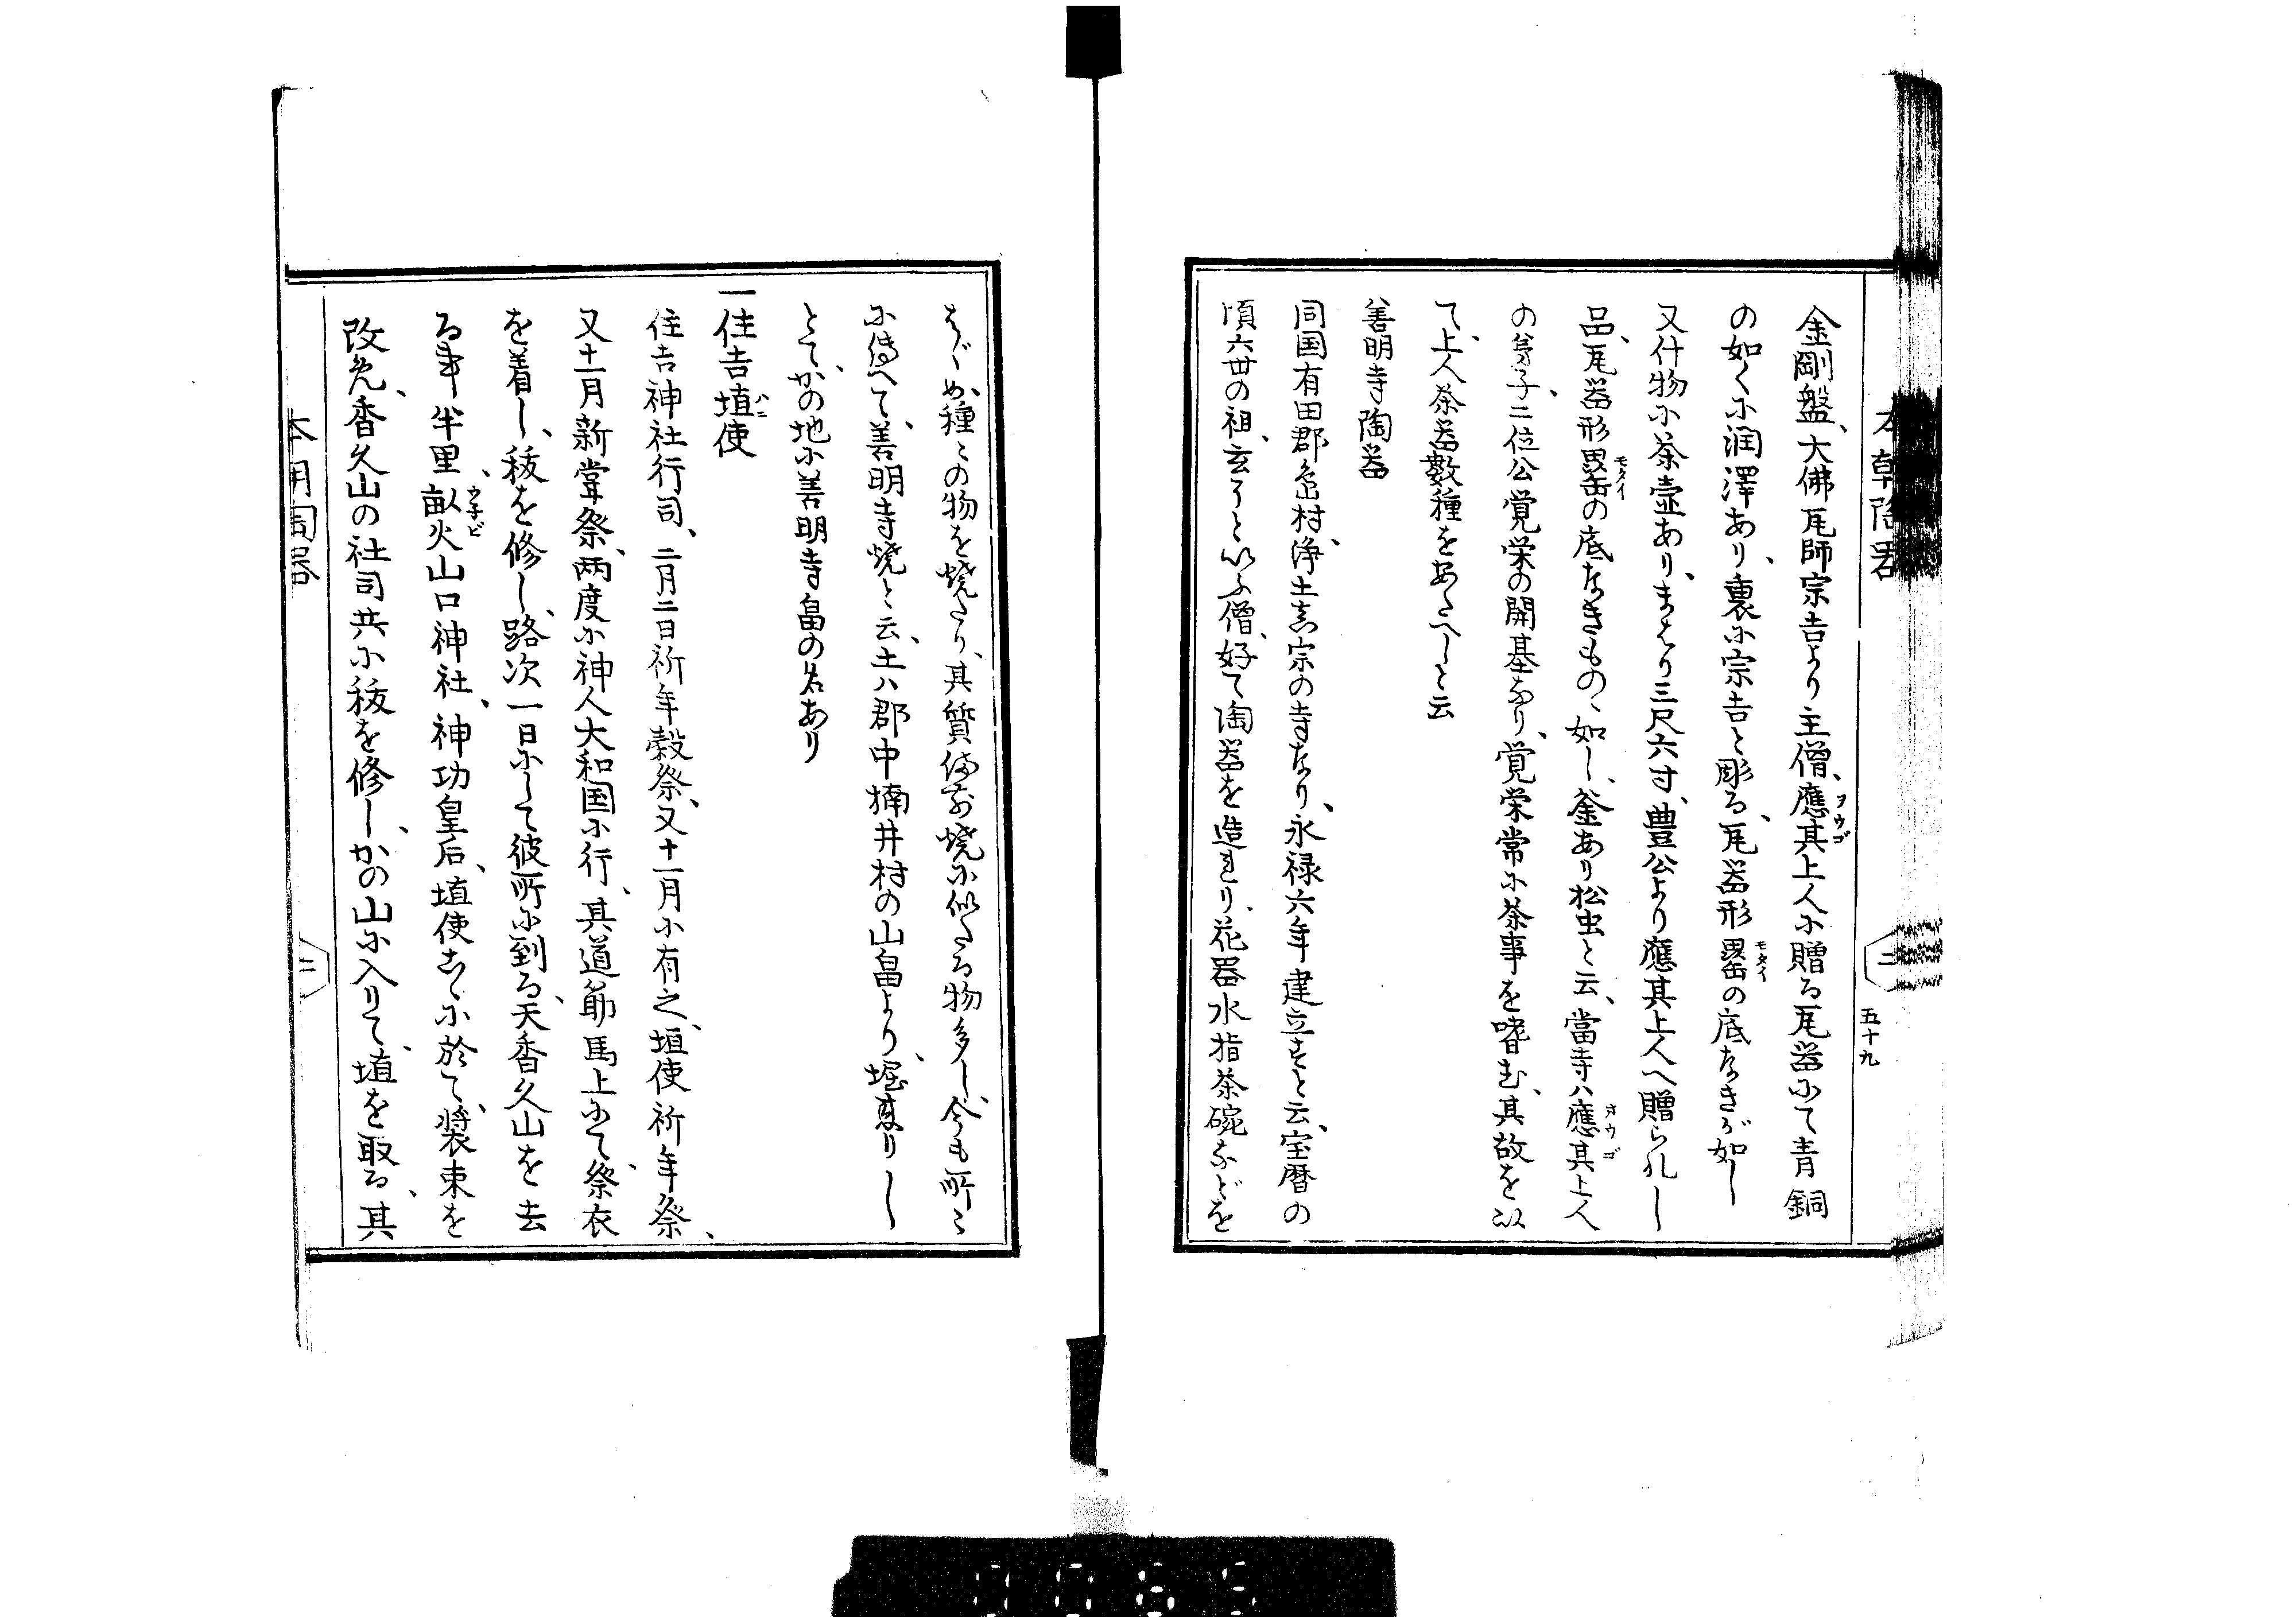 五十九
金剛盤、大佛瓦師宗吉より主僧、應其上人に贈る瓦器にて青銅
の如くに潤澤あり、裏に宗吉と彫る、瓦器形罌缶の底なきが如し
又什物に茶壺あり、まはり三尺六寸、豊公より應其上人へ贈られし
品、瓦器形罌缶の底なきもの、如し、釜あり松虫と云、當寺ハ應其上人
の弟子、二位公覚栄の開基なり、覚栄常に茶事を嗜む、其故を以
て、上人茶器數種をあたへしと云
善明寺陶器
同国有田郡 村、浄土真宗の寺なり、永禄六年建立すと云、宝暦の
頃六世の祖、玄了といふ僧、好て陶器を造れり、花器水指茶碗などを
はじめ、種々の物を焼たり、其質備前焼に似たる物多し、今も所々
に傳へて、善明寺焼と云、土ハ郡中楠井村の山畠より、堀來りし
とて、かの地に善明寺畠の名あり
一住吉埴使
住吉神社行司、二月二日祈年穀祭、又十一月に有之、埴使祈年祭、
又十一月新嘗祭、両度に神人大和国に行、其道筋馬上にて、祭衣
を着し、秡を修し、路次一日にして彼所に到る、天香久山を去
る事半里、畝火山口神社、神功皇后、埴使こゝに於て、装束を
改免、香久山の社司共に秡を修し、かの山に入りて、埴を取る、其